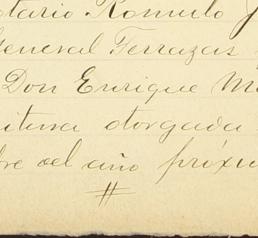 otario Romulo J
General Terrazas
Don Enrique M
itura otorgada
re del año próxi
#